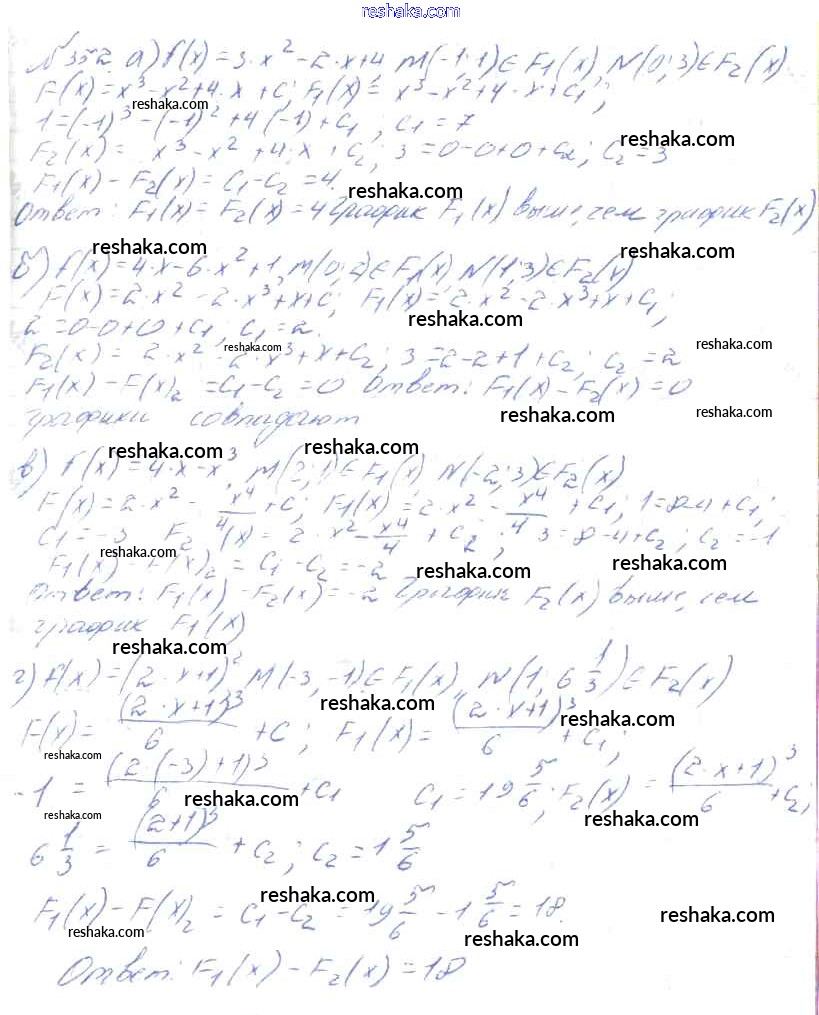 reshaka.com
№ 352. а) f(x) = 3·x² - 2·x + 4, M(-1; 1) ∈ F₁(x), N(0; 3) ∈ F₂(x)
F(x) = x³ - x² + 4·x + C; F₁(x) = x³ - x² + 4·x + C₁;
reshaka.com
1 = (-1)³ - (-1)² + 4(-1) + C₁; C₁ = 7
reshaka.com
F₂(x) = x³ - x² + 4·x + C₂; 3 = 0 - 0 + 0 + C₂; C₂ = 3
F₁(x) - F₂(x) = C₁ - C₂ = 4.
reshaka.com
Ответ: F₁(x) = F₂(x) = 4 График F₁(x) выше, чем график F₂(x)
reshaka.com reshaka.com
б) f(x) = 4·x - 6·x² + 1, M(0; 2) ∈ F₁(x) N(1; 3) ∈ F₂(x)
F(x) = 2·x² - 2·x³ + x + C; F₁(x) = 2·x² - 2·x³ + x + C₁;
reshaka.com
2 = 0 - 0 + 0 + C₁, C₁ = 2.
reshaka.com reshaka.com
F₂(x) = 2·x² - 2·x³ + x + C₂; 3 = 2 - 2 + 1 + C₂; C₂ = 2
F₁(x) - F(x)₂ = C₁ - C₂ = 0 Ответ: F₁(x) - F₂(x) = 0
reshaka.com reshaka.com
графики совпадают
reshaka.com reshaka.com
в) f(x) = 4·x - x³ M(2; 1) ∈ F₁(x) N(-2; 3) ∈ F₂(x)
F(x) = 2·x² - x⁴/4 + C; F₁(x) = 2·x² - x⁴/4 + C₁; 1 = 8 - 4 + C₁;
C₁ = -3 F₂(x) = 2·x² - x⁴/4 + C₂; 3 = 8 - 4 + C₂; C₂ = -1
reshaka.com
F₁(x) - F(x)₂ = C₁ - C₂ = -2
reshaka.com reshaka.com
Ответ: F₁(x) - F₂(x) = -2 График F₂(x) выше, чем
график F₁(x)
reshaka.com
г) f(x) = (2·x+1)² M(-3, -1) ∈ F₁(x), N(1; 6 1/3) ∈ F₂(x)
reshaka.com reshaka.com
F(x) = (2·x+1)³/6 + C; F₁(x) = (2·x+1)³/6 + C₁;
reshaka.com
-1 = (2·(-3)+1)³/6 + C₁ C₁ = 19 5/6; F₂(x) = (2·x+1)³/6 + C₂;
reshaka.com
reshaka.com reshaka.com
6 1/3 = (2+1)³/6 + C₂; C₂ = 1 5/6
reshaka.com
F₁(x) - F(x)₂ = C₁ - C₂ = 19 5/6 - 1 5/6 = 18.
reshaka.com
reshaka.com reshaka.com
Ответ: F₁(x) - F₂(x) = 18